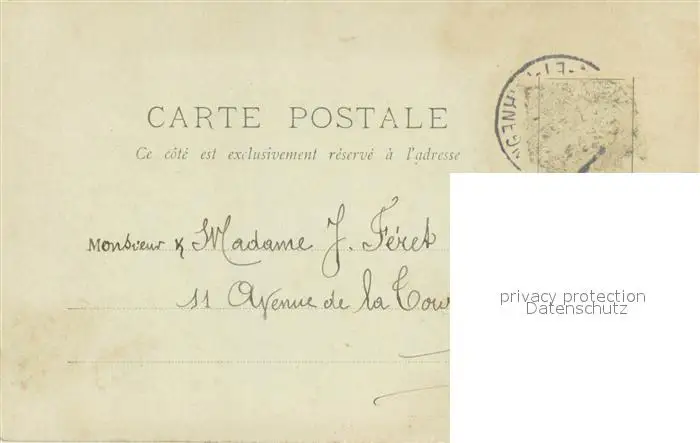 CARTE POSTALE
Ce côté est exclusivement réservé à l'adresse
Monsieur & Madame J. Féret
11 Avenue de la
privacy protection
Datenschutz